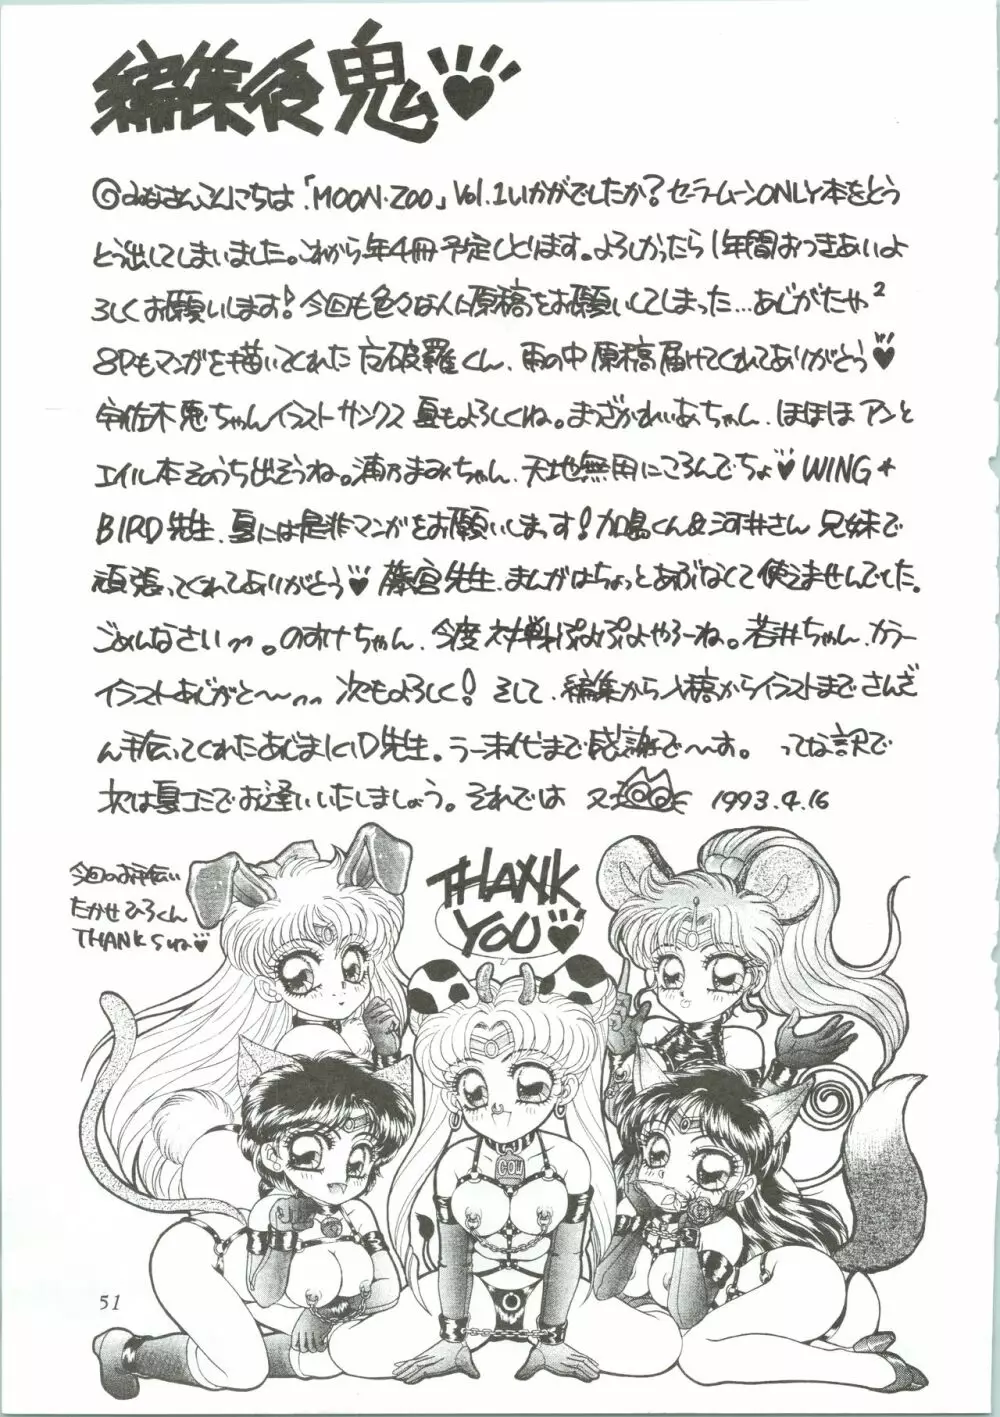 編集後鬼♥
◎みなさんこんにちは、「MOON・ZOO」Vol.1いかがでしたか？セーラームーンONLY本をとう
とう出してしまいました。これから年4冊予定しとります。よろしかったら1年間おつきあいよ
ろしくお願いします！今回も色々な人に原稿をお願いしてしまった…ありがたや²
8Pもマンガを描いてくれた 破羅くん、雨の中原稿届けてくれてありがとう♥
宇佐木 ちゃんイラストサンクス 夏もよろしくね。まっざかれいあちゃん、ほほほ アンと
エイル本そのうち出そうね。浦乃まみちゃん、天地無用にころんでちょ♥ WING★
BIRD先生、夏には是非マンガをお願いしまっす！加島くん&河井さん 兄妹で
頑張ってくれてありがとう♥ 藤宮先生、まんがはちょっとあぶなくて使えませんでした。
ごめんなさいっっ。のすけちゃん、今度対戦ぷよぷよやろーね。若井ちゃん、カラー
イラストありがと〜〜っっ 次もよろしく！ そして、編集から入稿からイラストまでさんざ
ん手伝ってくれたあじまKID先生。うー末代まで感謝で〜す。 ってな訳で
次は夏コミでお逢いいたしましょう。それでは 1993.4.16
今回のお手伝い
たかせひろくん
THANKSっっ♥
THANK
YOU♥
COW
51